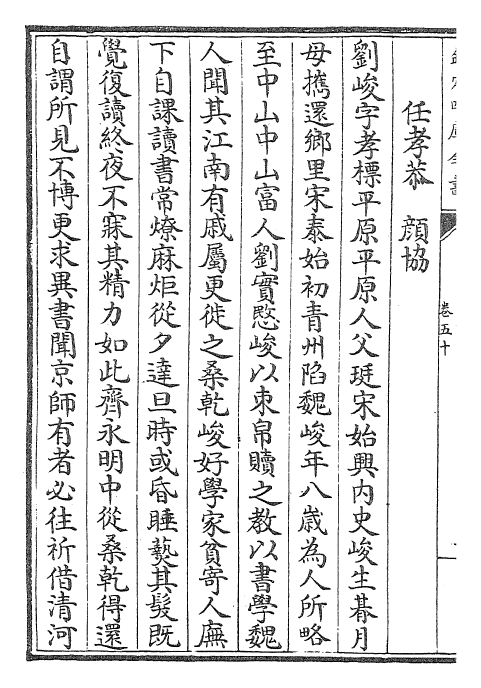 卷五十
任孝恭 顔協
劉峻字孝標平原平原人父珽宋始興内史峻生朞月
母携還鄉里宋泰始初青州陷魏峻年八歲為人所略
至中山中山富人劉實愍峻以束帛贖之教以書學魏
人聞其江南有戚屬更徙之桑乾峻好學家貧寄人廡
下自課讀書常燎麻炬從夕達旦時或昏睡爇其髮既
覺復讀終夜不寐其精力如此齊永明中從桑乾得還
自謂所見不博更求異書聞京師有者必往祈借清河